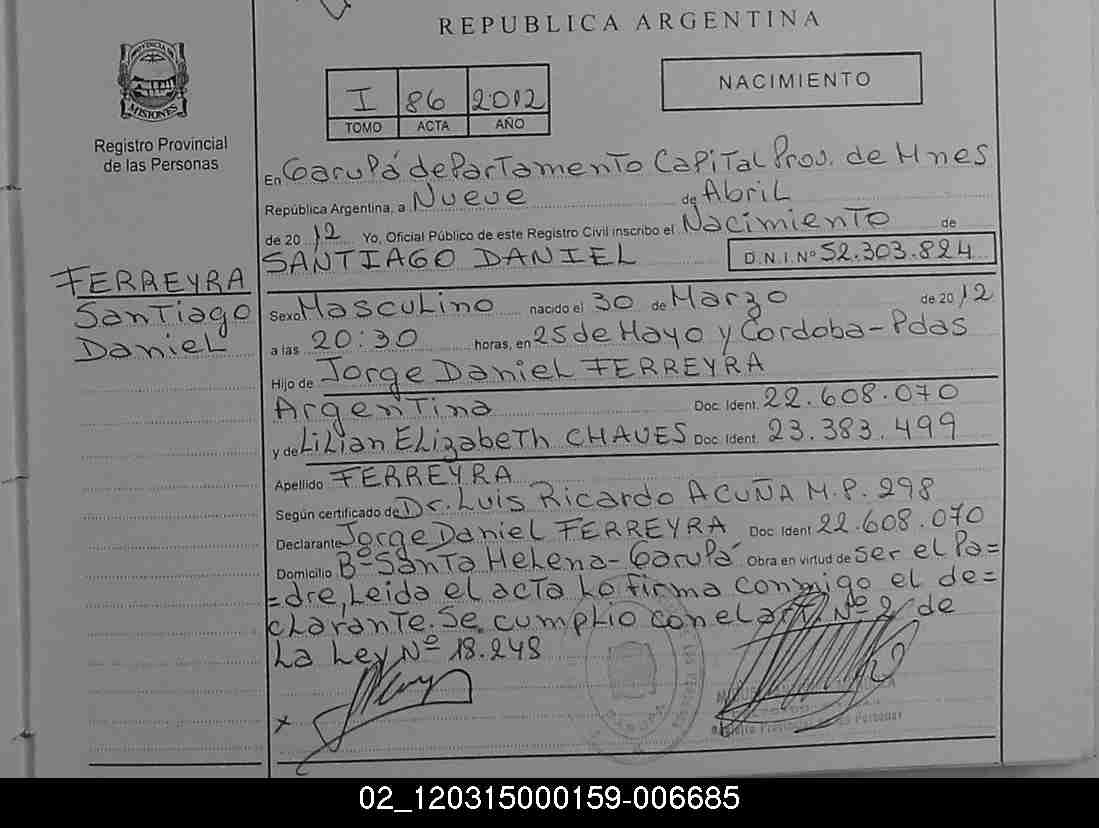 REPUBLICA ARGENTINA
PROVINCIA DE
MISIONES
Registro Provincial
de las Personas
I 86 2012
TOMO ACTA AÑO
NACIMIENTO
En Garupá departamento Capital Prov. de Mnes
República Argentina, a Nueve de Abril
de 2012 Yo, Oficial Público de este Registro Civil inscribo el Nacimiento de
SANTIAGO DANIEL D.N.I. Nº 52.303.824
FERREYRA
Santiago
Daniel
Sexo Masculino nacido el 30 de Marzo de 2012
a las 20:30 horas, en 25 de Mayo y Cordoba-Pdas
Hijo de Jorge Daniel FERREYRA
Argentina Doc. Ident. 22.608.070
y de Lilian Elizabeth CHAVES Doc. Ident. 23.383.499
Apellido FERREYRA
Según certificado de Dr. Luis Ricardo ACUÑA M.P. 298
Declarante Jorge Daniel FERREYRA Doc. Ident 22.608.070
Domicilio Bº Santa Helena-Garupá Obra en virtud de ser el Pa=
=dre, Leida el acta Lo firma conmigo el de=
clarante. Se cumplio con el art. Nº 2 de
La Ley Nº 18.248
x
GARUPA
02_120315000159-006685